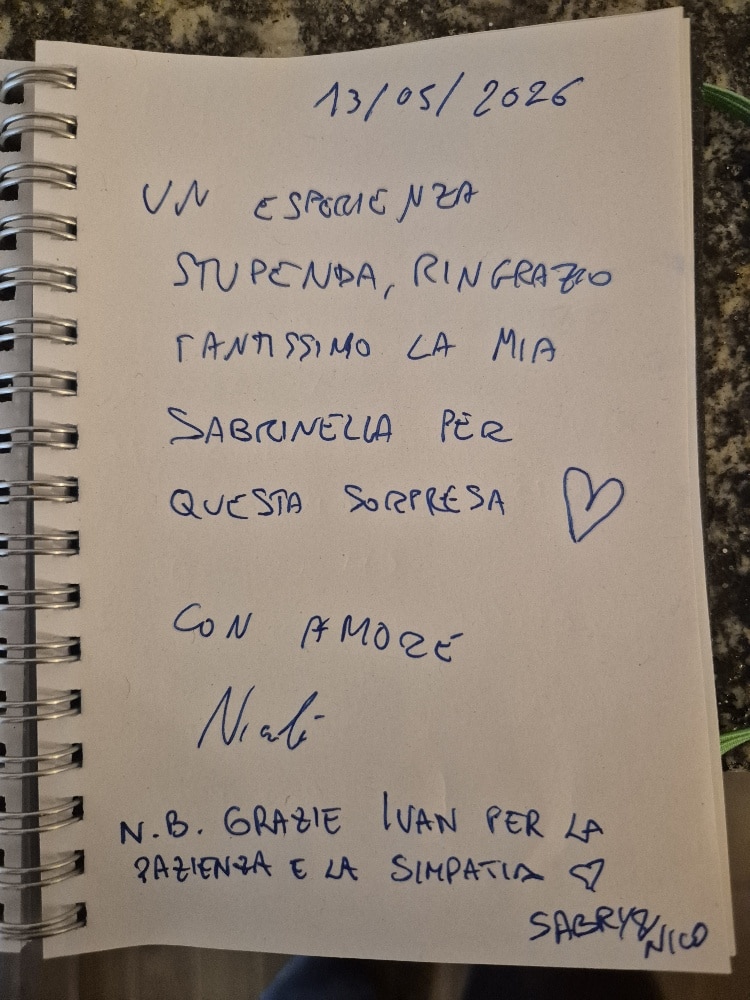 13/05/2026
UN ESPERIENZA
STUPENDA, RINGRAZIO
TANTISSIMO LA MIA
SABRINELLA PER
QUESTA SORPRESA
CON AMORE
N.B. GRAZIE IVAN PER LA
PAZIENZA E LA SIMPATIA
SABRY & NICO